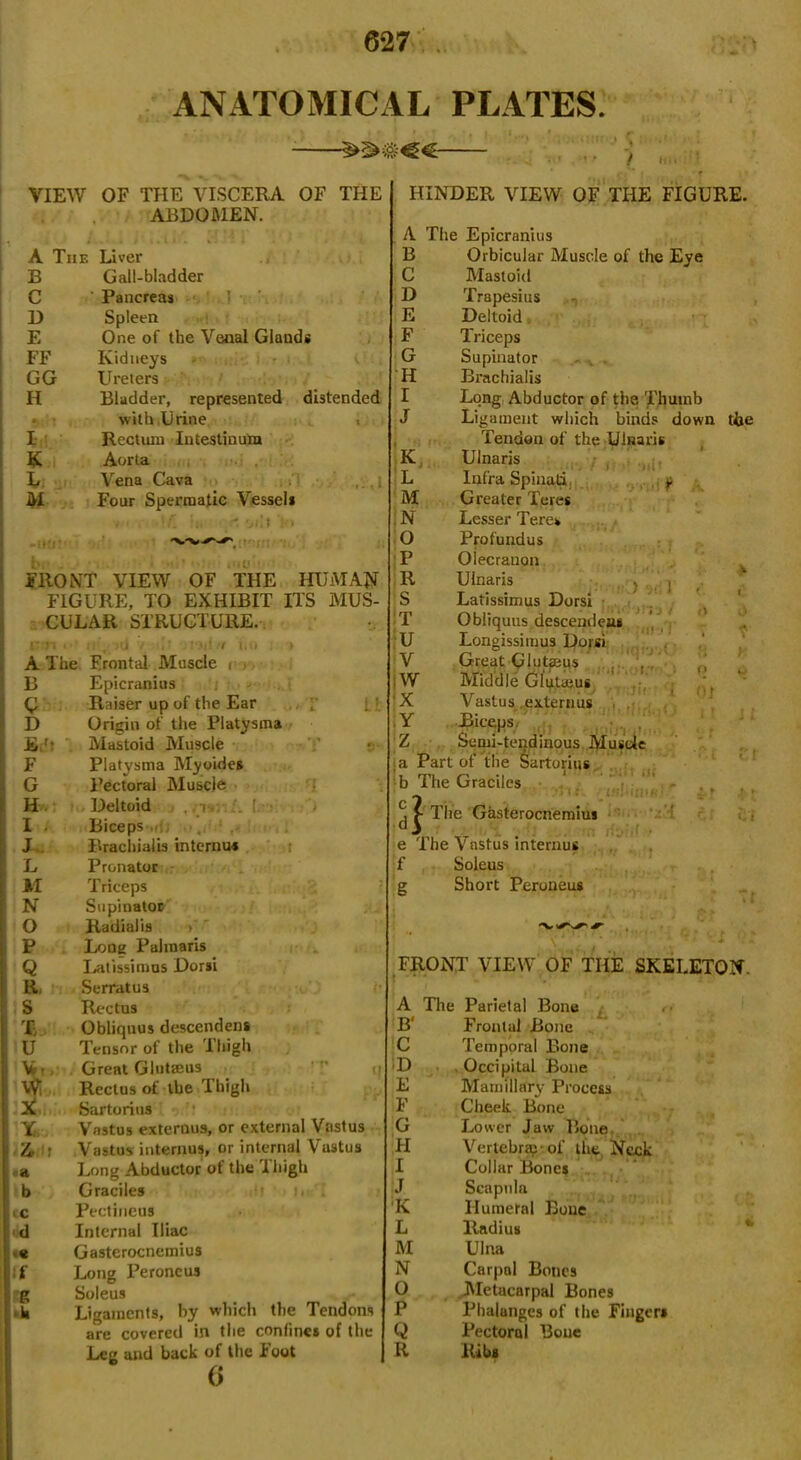 627
ANATOMICAL PLATES.
VIEW OF THE VISCERA OF THE
ABDOMEN.
A THE Liver
B Gall-bladder
C Pancreas
D Spleen
E One of the Venal Glands
FF Kidneys
GG Ureters
H Bladder, represented distended
with Urine
I Rectum Intestinum
K Aorta
L Vena Cava
M Four Spermatic Vessels
FRONT VIEW OF THE HUMAN
FIGURE, TO EXHIBIT ITS MUS-
CULAR STRUCTURE.
A The Frontal Muscle
B Epicranius
C Raiser up of the Ear
D Origin of the Platysma
E Mastoid Muscle
F Platysma Myoides
G Pectoral Muscle
H Deltoid
I Biceps
J Brachialis internus
L Pronator
M Triceps
N Supinator
O Radialis
P Long Palmaris
Q Latissimus Dorsi
R Serratus
S Rectus
T Obliquus descendens
U Tensor of the Thigh
V Great Glutæus
W Rectus of the Thigh
X Sartorius
Y Vastus externus, or external Vastus
Z Vastus internus, or internal Vastus
a Long Abductor of the Thigh
b Graciles
c Pectineus
d Internal Iliac
e Gasterocnemius
f Long Peroneus
g Soleus
k Ligaments, by which the Tendons
are covered in the confines of the
Leg and back of the Foot
6
HINDER VIEW OF THE FIGURE.
A The Epicranius
B Orbicular Muscle of the Eye
C Mastoid
D Trapesius
E Deltoid
F Triceps
G Supinator
H Brachialis
I Long Abductor of the Thumb
J Ligament which binds down the
Tendon of the Ulnaris
K Ulnaris
L Infra Spinati
M Greater Teres
N Lesser Teres
O Profundus
P Olecranon
R Ulnaris
S Latissimus Dorsi
T Obliquus descendens
U Longissimus Dorsi
V Great Glutæus
W Middle Glutæus
X Vastus externus
Y Biceps
Z Semi-tendinous Muscle
a Part of the Sartorius
b The Graciles
c
d } The Gasterocnemius
e The Vastus internus
f Soleus
g Short Peroneus
FRONT VIEW OF THE SKELETON.
A The Parietal Bone
B Frontal Bone
C Temporal Bone
D Occipital Bone
E Mamillary Process
F Cheek Bone
G Lower Jaw Bone
H Vertebræ of the Neck
I Collar Bones
J Scapula
K Humeral Bone
L Radius
M Ulna
N Carpal Bones
O Metacarpal Bones
P Phalanges of the Fingers
Q Pectoral Bone
R Ribs